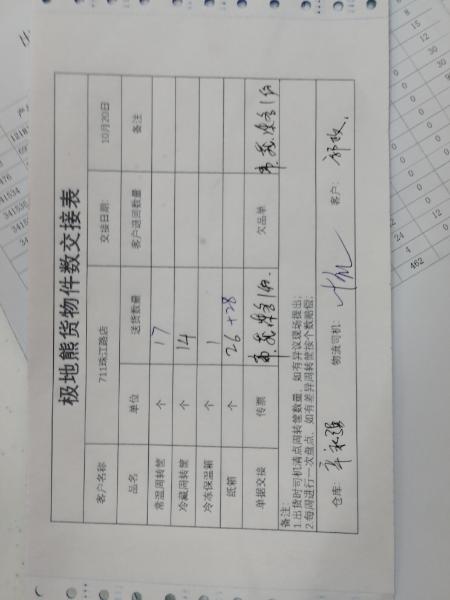 极地熊货物件数交接表
客户名称 711珠江路店 交接日期: 10月20日
品名 单位 送货数量 客户退回数量 备注
常温周转筐 个 17
冷藏周转筐 个 14
冷冻保温箱 个 1
纸箱 个 26+28
单据交接 传票 欠品单
备注:
1.出货时司机清点周转筐数量，如有异议现场提出;
2.每周进行一次盘点，如有差异周转筐按个数赔偿;
仓库: 物流司机: 客户:
462